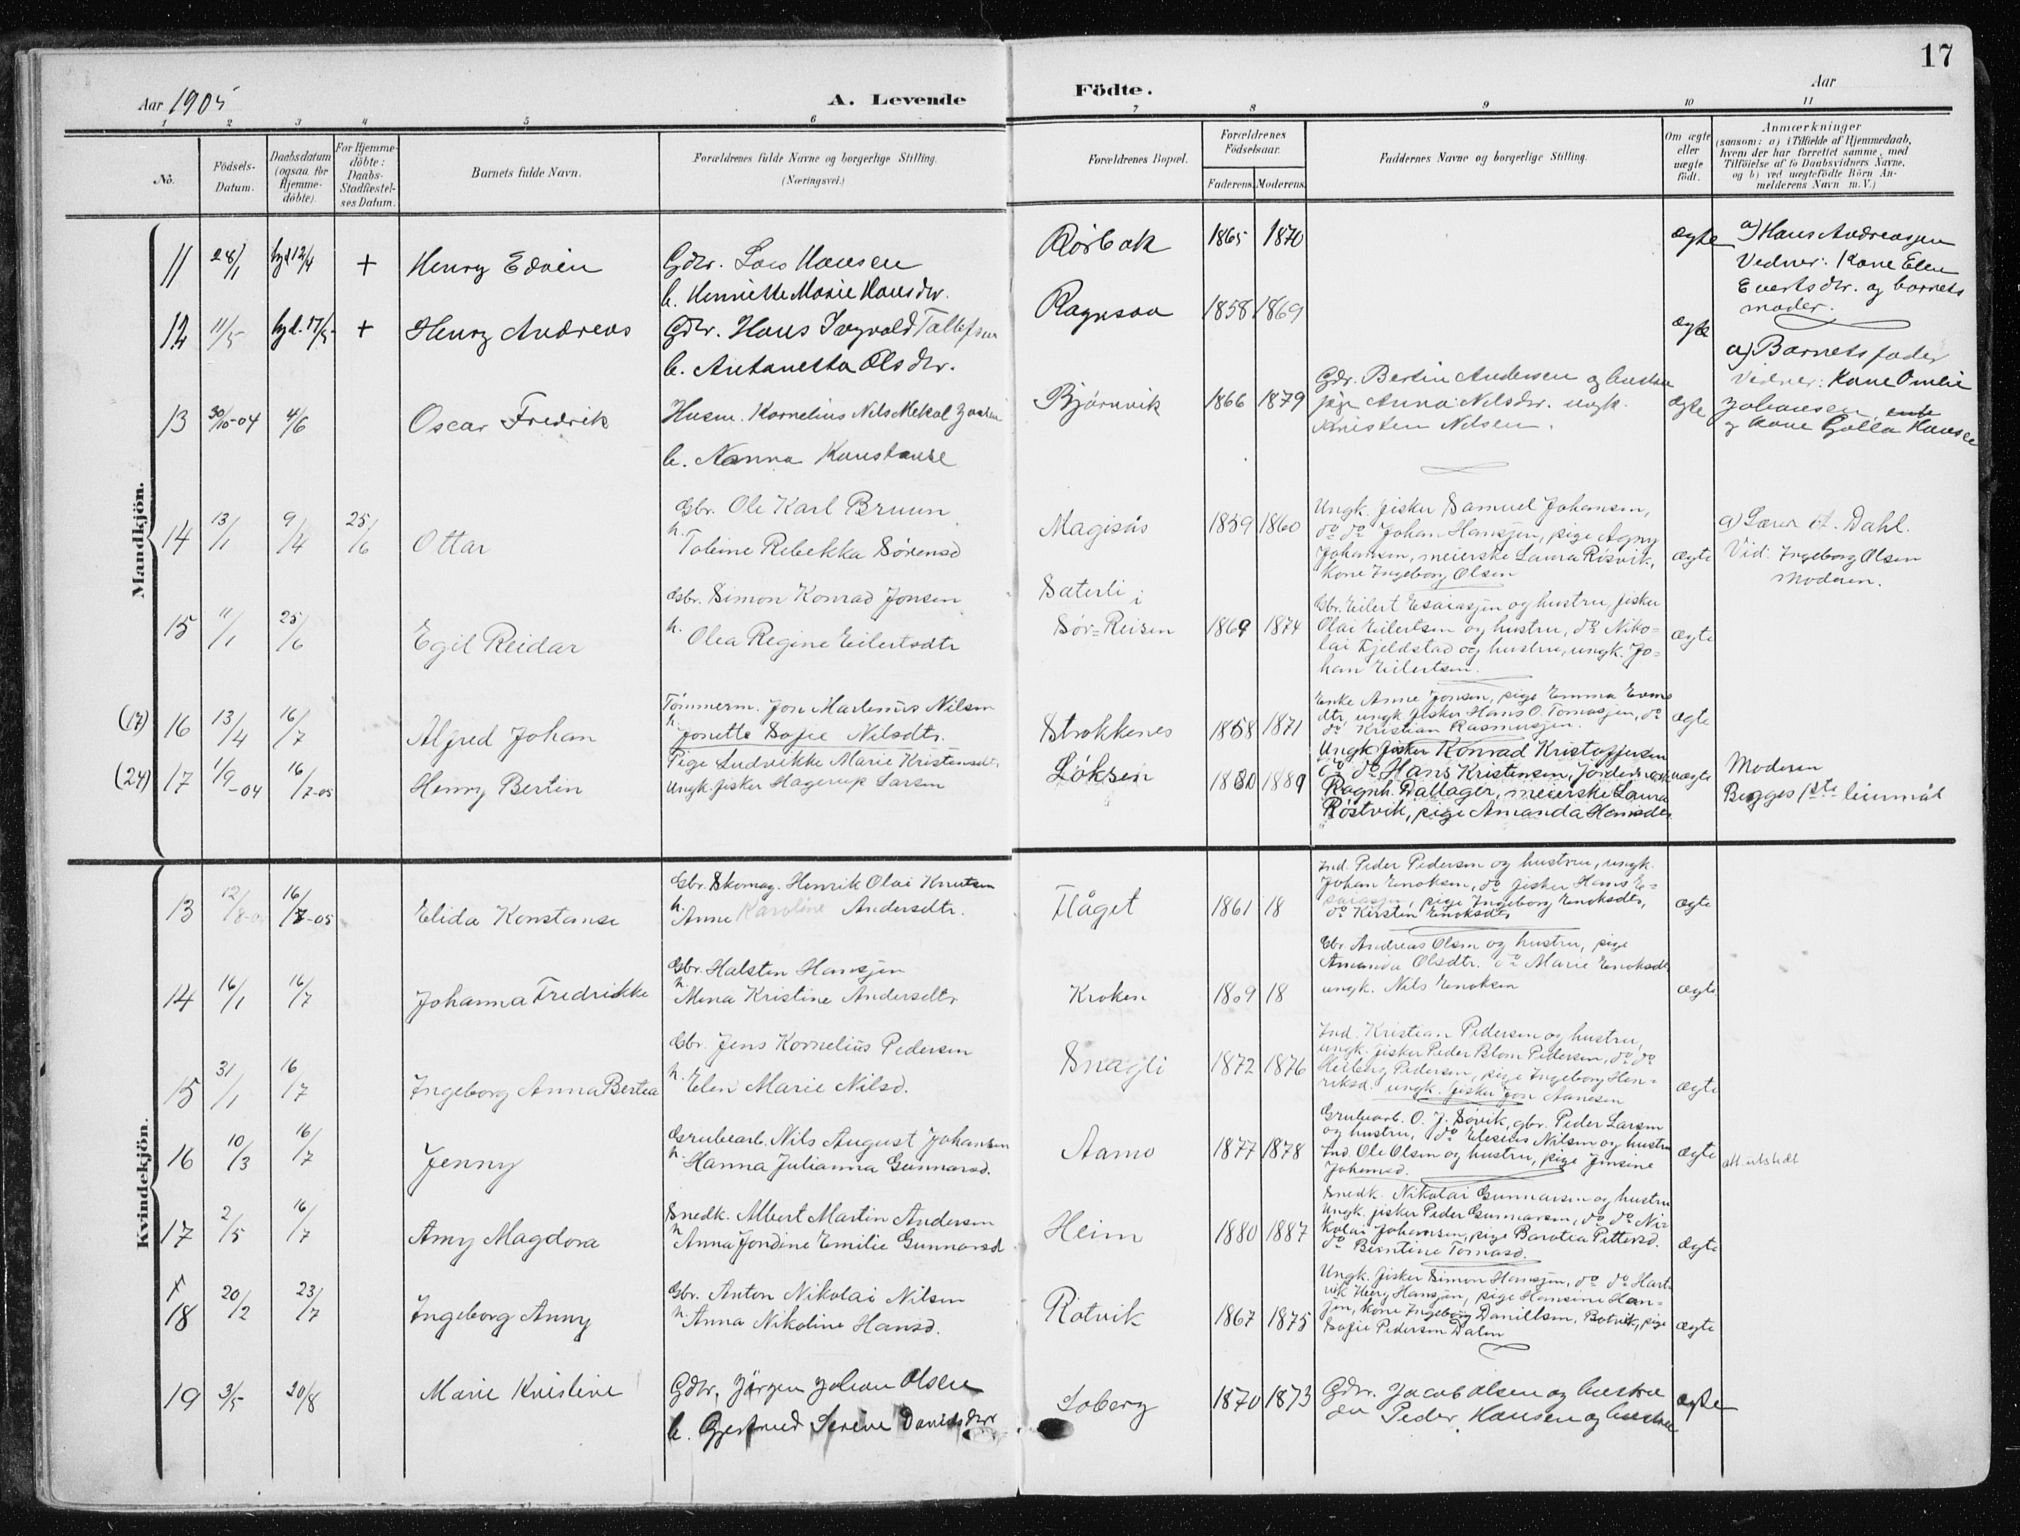 17
Aar 1905
A. Levende
Födte.
Aar
1 2 3 4 5 6 7 8 9 10 11
No.
Födsels-
Datum.
Daabsdatum
(ogsaa for
Hjemme-
döbte).
For Hjemme-
döbte:
Daabs-
Stadfæstel-
ses Datum.
Barnets fulde Navn.
Forældrenes fulde Navne og borgerlige Stilling.
(Næringsvei.)
Forældrenes Bopæl.
Forældrenes
Födselsaar.
Faderens. Moderens.
Faddernes Navne og borgerlige Stilling.
Om ægte
eller
uægte
födt.
Anmærkninger
(saasom: a) i Tilfælde af Hjemmedaab,
hvem der har forrettet samme, med
Tilföielse af to Daabsvidners Navne,
og b) ved uægtefödte Börn An-
melderens Navn m. V.)
Mandkjön.
11 28/1 hjd 12/4 + Henry Edvin
Gdbr. Hansen
h. Henriette Marie Hansdtr.
Rørbak 1865 1870 ægte
a) Hans Andreassen
Vidner: Kone Elen
Evertsdtr. og barnets
moder.
12 11/5 hjd. 17/5 + Henry Andreas
Gdbr. Hans Ingvald Tollefsen
h. Antonetta Olsdtr.
1858 1869 ægte
a) Barnets fader
Vidner: Kone
Johansen,
og kone Hansen
13 30/10-04 4/6 Oscar Fredrik
Husm. Kornelius Nils Mekal
h. Nanna Konstanse
Bjørnvik 1866 1879
Gdr. Bertin Andersen og hustru
pige Anna Nilsdtr. ungk.
Kristen Nilsen.
ægte
14 13/1 9/4 25/6 Ottar
Gbr. Ole Karl Bruun
h. Tobine Rebekka Sørensd
Magisås 1859 1860
Ungk. fisker Samuel Johansen,
do do Johan Hansen, pige Agny
Johansen, meierske Laura Røsvik,
Kone Ingeborg Olsen
ægte
a) Lærer Dahl.
Vid: Ingeborg Olsen
Moderen.
15 11/1 25/6 Egil Reidar
Gbr. Simon Konrad Jonsen
h. Olea Regine Eilertsdtr
Sæterli i
Sør-Reisen 1869 1874
Gbr. Eilert Esaiassen og hustru, fisker
Olai Eilertsen og hustru, do Niko-
lai Fjeldstad og hustru, ungk. Jo-
han Eilertsen.
ægte
(17) 16 13/4 16/7 Alfred Johan
Tømmerm. Jon Martinus Nilsen
h. Jonette Sofie Nilsdtr.
Strokkenes 1858 1871
Enke Anne Jonsen, pige Emma
dtr, ungk. fisker Hans O. Tomassen, do
do Kristian Rasmussen.
ægte
(24) 17 1/9-04 16/7-05 Henry Bertin
Pige Ludvikke Marie Kristensdtr
Ungk. fisker Hagerup Larsen
Løksen 1880 1889
Ungk. fisker Konrad Kristoffersen
do do Hans Kristensen,
Ragnh. Dallager, meierske Laura
Røstvik, pige Amanda Hansdtr
uægte
Moderen
Begges 1ste leiermål
Kvindekjön.
13 12/8-04 16/7-05 Elida Konstanse
Gbr. Skomag. Henrik Olai Knutsen
h. Anne Karoline Andersdtr.
Flåget 1861 18
Ind. Peder Pedersen og hustru, ungk.
Johan Enoksen, do fisker Hans E-
saiassen, pige Ingeborg Enoksdtr,
do Kirsten Enoksdtr
ægte
14 16/1 16/7 Johanna Fredrikke
Gbr. Halsten Hansen
h. Mina Kristine Andersdtr
Kroken 1869 18
Gbr. Andreas Olsen og hustru, pige
Amanda Olsdtr. do Marie Enoksdtr
ungk. Nils Enoksen
ægte
15 31/1 16/7 Ingeborg Anna Bertea
Gbr. Jens Kornelius Pedersen
h. Elen Marie Nilsd.
Snagli 1872 1876
Ind. Kristian Pedersen og hustru,
ungk. fisker Peder Blom Pedersen, do do
Heiberg Pedersen, pige Ingeborg Hen-
riksd. ungk. fisker Jon Aanesen
ægte
16 10/3 16/7 Jenny
Grubearb. Nils August Johansen
h. Hanna Julianna Gunnarsd.
Aamo 1877 1878
Grubearb. O. J. Søvik, gbr. Peder Larsen
og hustru, do Elesius Nilsen og hustru
Ind. Ole Olsen og hustru, pige Jensine
Johansd.
ægte
att. utstedt
17 2/5 16/7 Amy Magdora
Snedk. Albert Martin Andersen
h. Anna Jondine Emilie Gunnarsd
Heim 1880 1887
Snedk. Nikolai Gunnarsen og hustru
Ungk. fisker Peder Gunnarsen, do do Ni-
kolai Johansen, pige Barotea Pettersd.
do Berntine Tomasd.
ægte
18 20/2 23/7 Ingeborg Anny
Gbr. Anton Nikolai Nilsen
h. Anna Nikoline Hansd.
Rotvik 1867 1875
Ungk. fisker Simon Hansen, do do Hart-
vik Hansen, pige Hansine Han-
sen, kone Ingeborg Daniellsen, Botvik, pige
Sofie Pedersen Dalen
ægte
19 3/5 20/8 Marie Kristine
Gdbr. Jørgen Johan Olsen
h. Gjertrud Serine Danielsdtr
Soberg 1870 1873
Gdbr. Jacob Olsen og hustru
do Peder Hansen og hustru
ægte